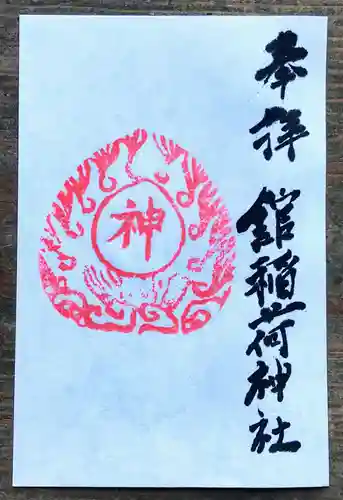 奉拝 舘稲荷神社
神